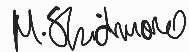 M. Skidmore